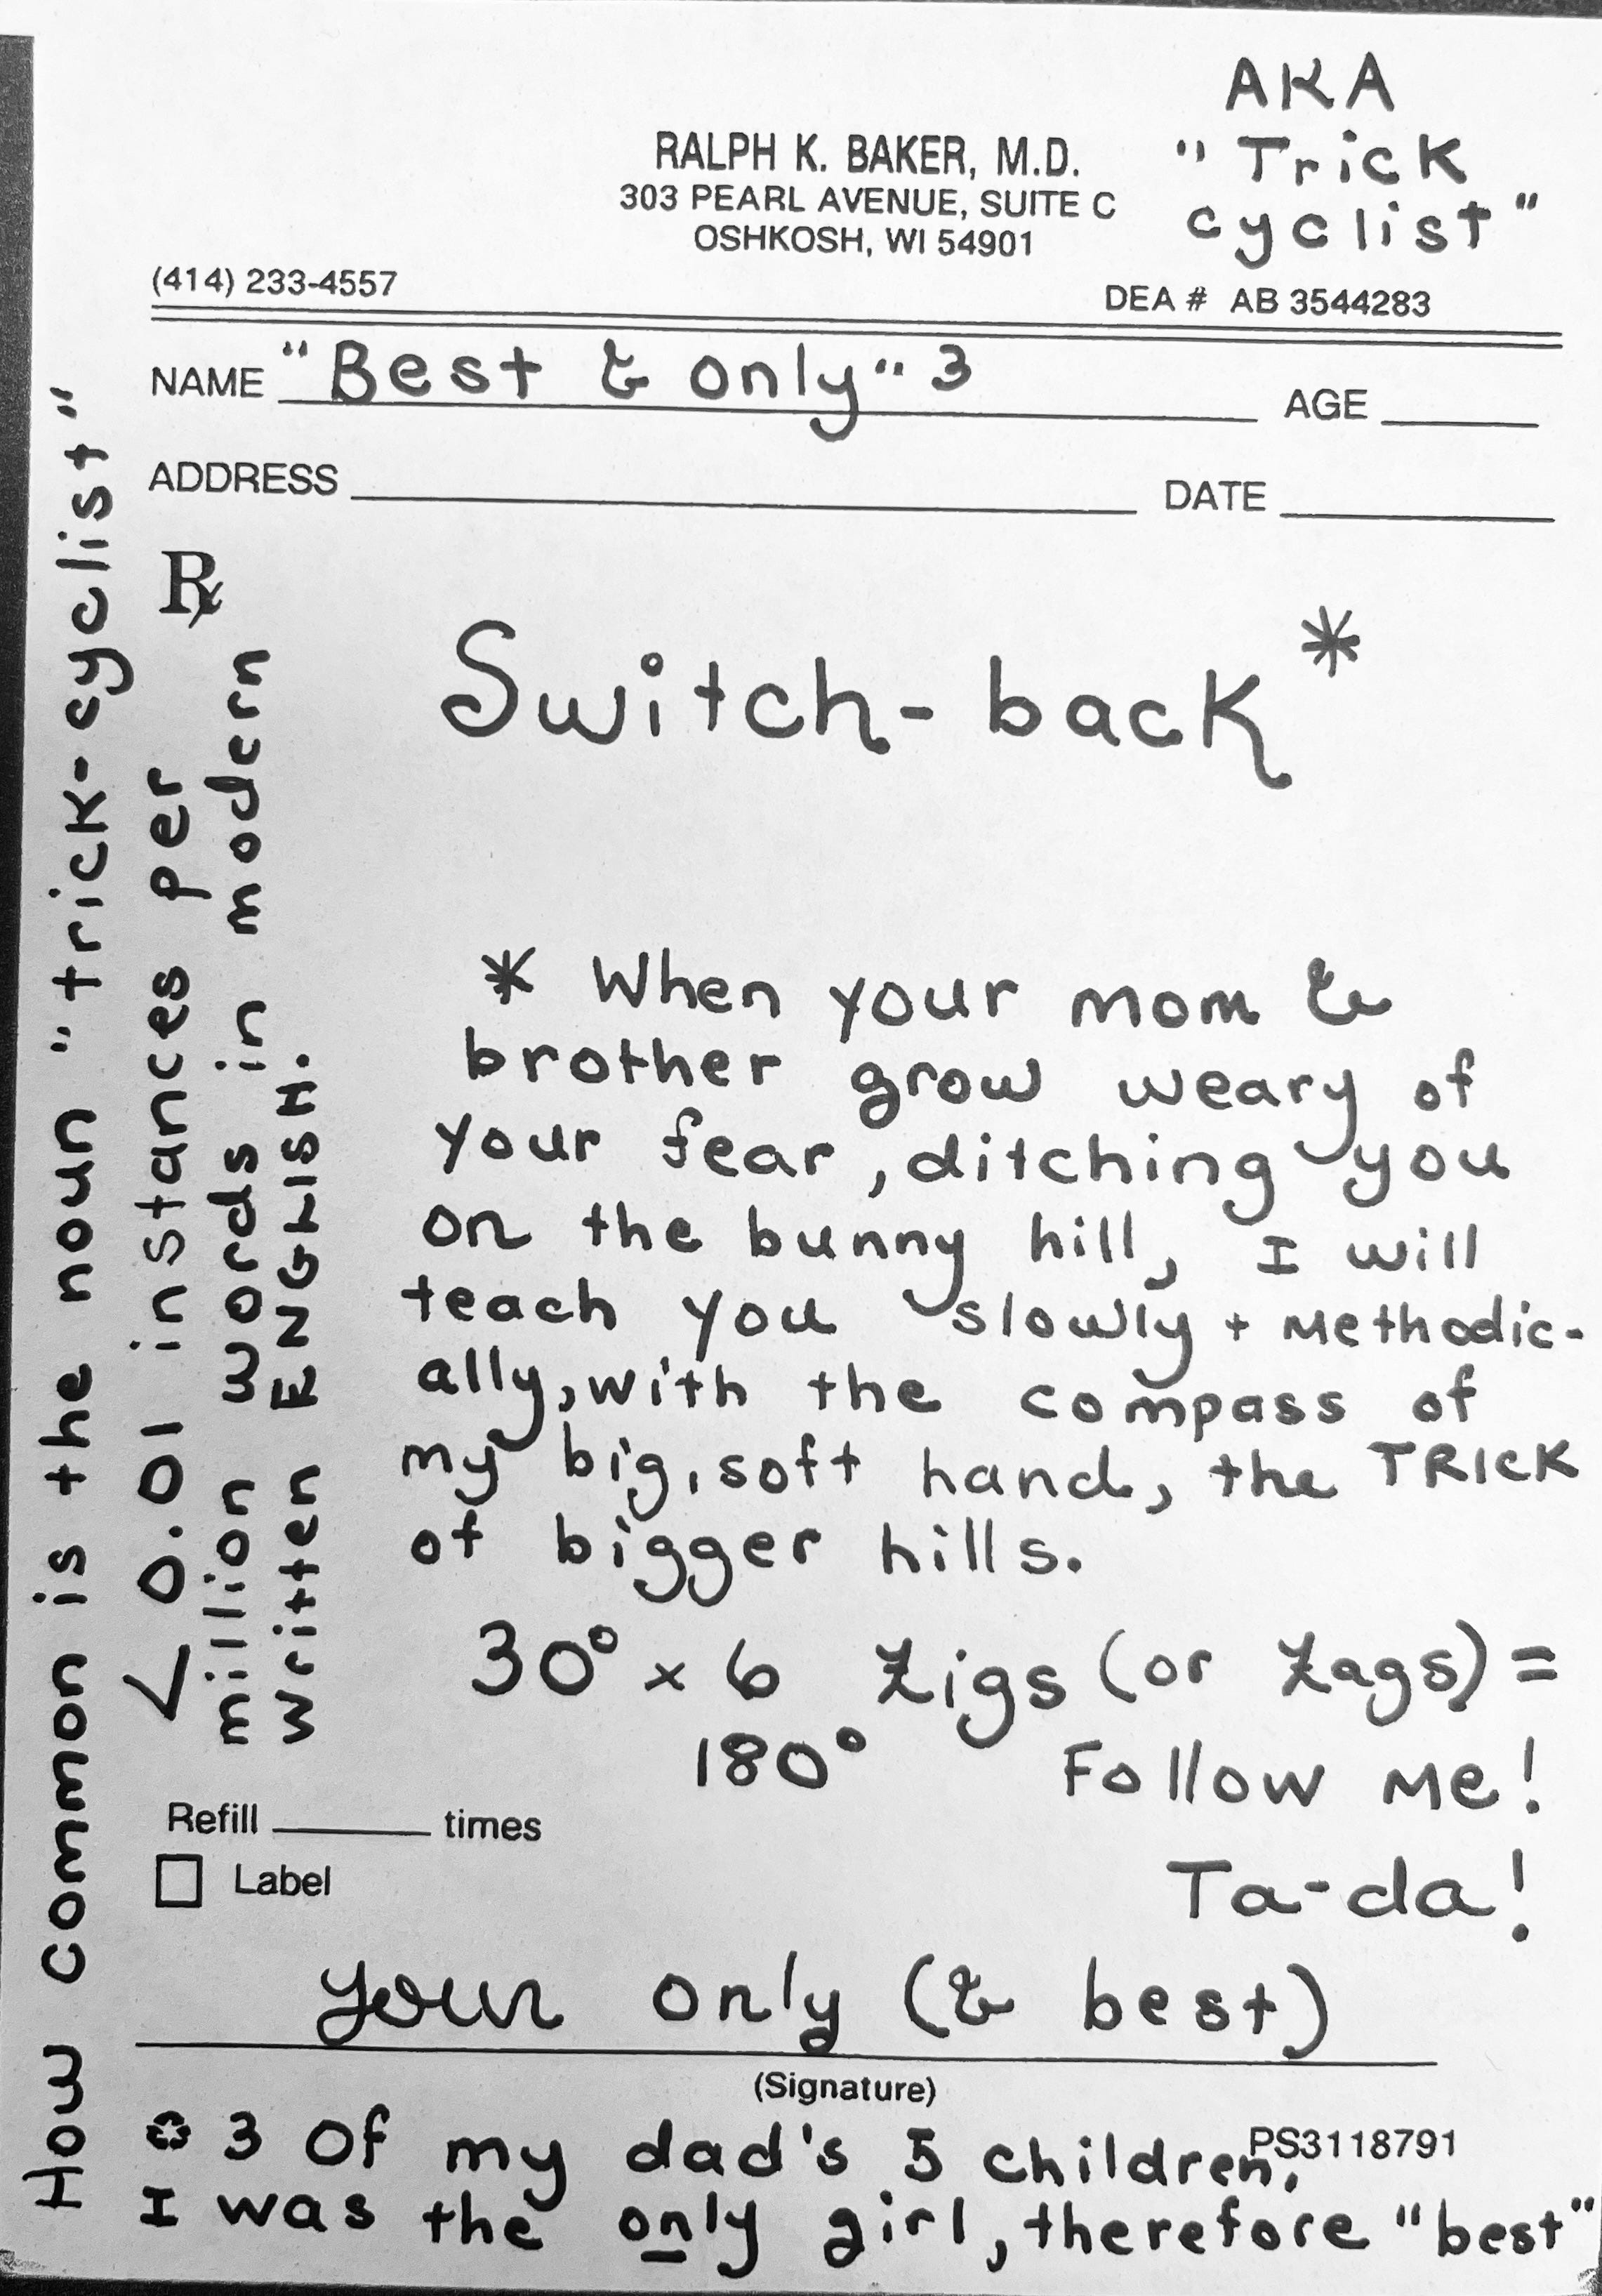 AKA
"Trick
cyclist"
RALPH K. BAKER, M.D.
303 PEARL AVENUE, SUITE C
OSHKOSH, WI 54901
(414) 233-4557
DEA # AB 3544283
NAME "Best & only" 3 AGE
ADDRESS DATE
Rx
Switch-back *
* When your mom &
brother grow weary of
your fear, ditching you
on the bunny hill, I will
teach you slowly + methodic-
ally, with the compass of
my big, soft hand, the TRICK
of bigger hills.
30° x 6 zigs (or zags) =
180° Follow me!
Ta-da!
Refill times
Label
your only (& best)
(Signature)
PS3118791
3 Of my dad's 5 children,
I was the only girl, therefore "best"
How common is the noun "trick-cyclist"
< 0.01 instances per
million words in modern
written ENGLISH.